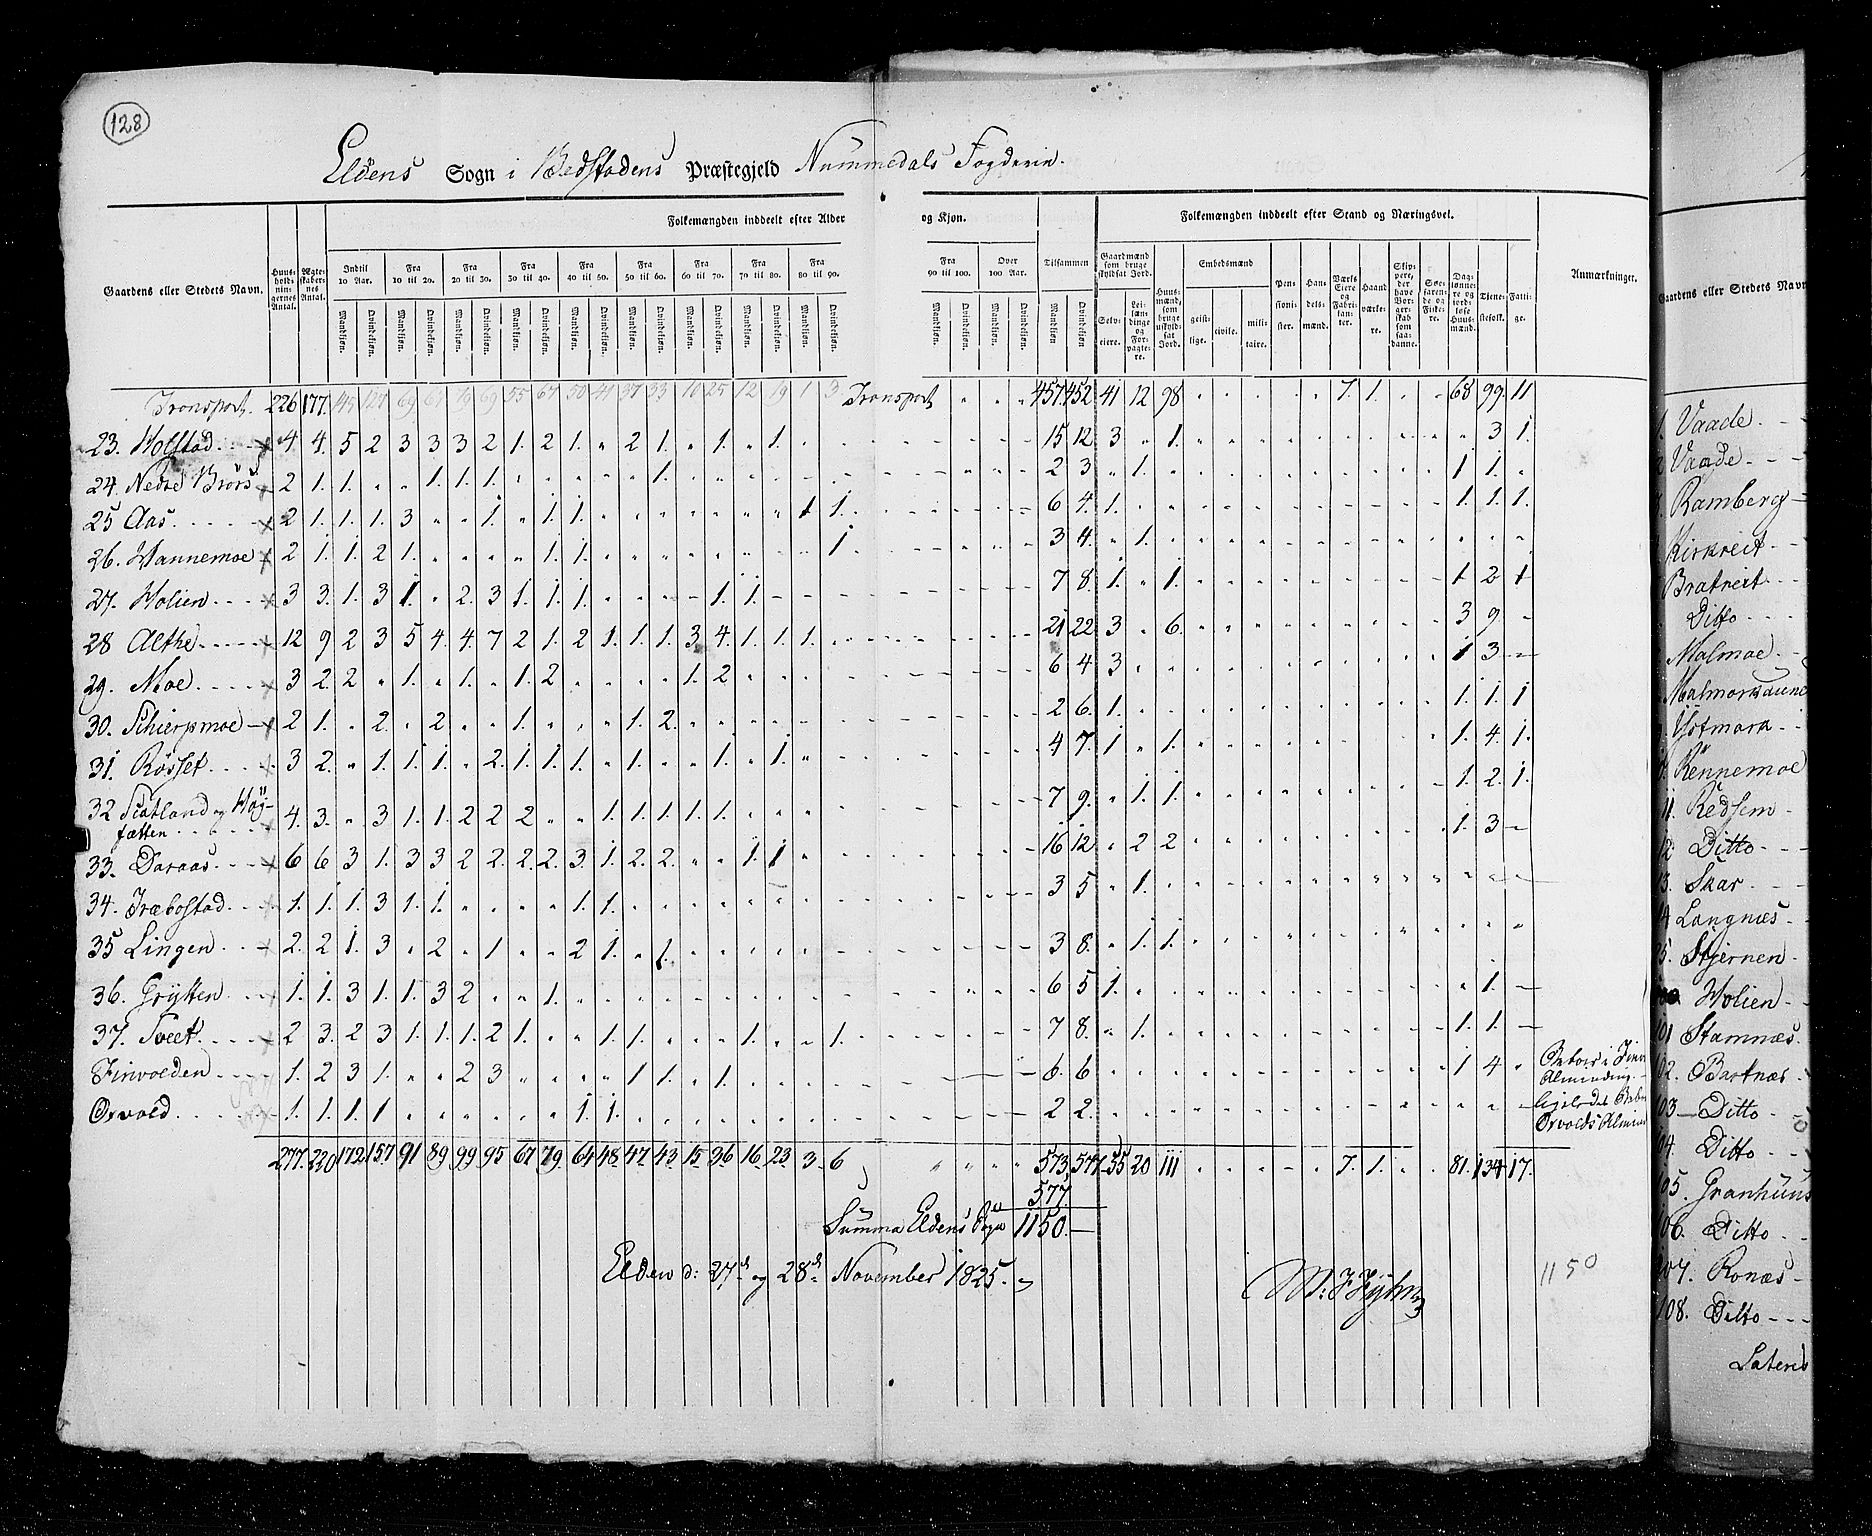 128
Eldens Sogn i Bedstadens Præstegjeld Nummedals Fogderie.
Gaardens eller Stedets Navn. Huus-holdnin-gernes Antal. Ægte-skaber-nes Antal. Folkemængden inddeelt efter Alder og Kjøn. Tilsammen Folkemængden inddeelt efter Stand og Næringsvei. Anmærkninger.
Indtil 10 Aar. Fra 10 til 20. Fra 20 til 30. Fra 30 til 40. Fra 40 til 50. Fra 50 til 60. Fra 60 til 70. Fra 70 til 80. Fra 80 til 90. Fra 90 til 100. Over 100 Aar.
Mandkjøn. Qvindekjøn.
Gaardmænd som bruge skyldsat Jord. Selveiere. Leilændinge og Forpagtere. Huusmænd, som bruge uskyldsat Jord. Embedsmænd geistlige. civile. militaire. Pensionister. Handelsmænd. Værks Eiere og Fabrikanter. Haandværkere. Skippere, der have Borgerskab som saadanne. Søefarende og Fiskere. Daglønnere og jordløse Huusmænd. Tjenestefolk. Fattige.
Transport. 226 177. 145 127 69 67 79 69 55 67 50 41 37 33 10 25 12 19 1 3 Transport 457 452 41 12 98 7. 1. 68 99. 11
23. Holstad 4 4. 5 2 3 3 3 2 1. 2 1. " 2 1. " 1. " 1. 15 12 3 " 1. 3 1.
24. Nedre Brørs 2 1. 1. " " 1. 1. 1. 1. 2 3 " 1. 1 1. "
25 Aas 2 1. 1. 1. 3 " " 1. " 1. 1. 1 1. 6 4. 1. 1. 1. 1.
26. Wannemoe 2 1. 1. 2 1. 1. 1. 1 3 4. " 1.
27. Holien 3 3. 1. 3 1. " 2. 3 1. 1. 1. 1. 1. 7 8. 1. " 1. 1 2 1
28 Althe 12 9 2 3 5 4. 4. 7 2 1. 2 1. 1. 1. 3. 4. 1. 1. 1. 21 22 3 " 6. 3 9.
29. Moe 3 2. 2 " 1. " 1. " 1. 2 1. 2 6 4 3 1 3
30. Schierpmoe 2 1. " 2. " 2 " " 1. 1. 2. 2 6. 1. 1. 1. 1
31. Rösset 3 2. " 1. 1. 1. " 2. 1. 1. 1. " 1. " " 1. " 1. 4 7. 1 " 1. 1. 4. 1.
32 Scatland og Høg-
fætten 4. 3. " 3 1. 1. 2 2 2 " " 1. 1. 1. 1. 1. 7 9. " 1. 1. 1. 2. 1.
33. Daraas 6 6 3 1. 3 3 2 2. 2. 2. 3. 1. 2. 2. " " 1. 1 " 16 12 " 2 2 1. 3
34. Træbostad 1. 1. 1. 3 1. 1. 1. 1. 3 5 " 1.
35 Lingen 2. 2 1. 3 " 2 " 1 " " 2 1. " 1. 3 8. " 1. 1.
36. Grÿtten 1. 1. 3 1. 1. 3 2 " " 1. 6 5 1. 1.
37. Tveet 2 3. 2 3 1. 1. 1. 2 1. " " 1. 1. 1. " " 1. 7 8. " 1. 1. 1.
Finvolden 1. 2 3 1. " " 2 3 1 1. " 1. 6. 6 1 4
Osvold 1. 1. 1. 1 1. 1. 2 2.
277. 220 172 157 91 89 99 95 67 79. 64 48. 47 43 15 36 16. 23 3. 6 573 577. 55 20 111 7. 1. 81. 134 17.
577.
Summa Eldens Sogn 1150.
Elden d: 27d og 28d November 1825.
1150
1. Vaade
2 Vaade
Ramberg
Kirkreit
Bratreit
Ditto
Malmoe
Malmorkaune
Ostmark
Rennemoe
11. Redsem
12. Ditto
13. Skar
14 Langnæs
15. Stjernen
100 Holien
101 Stamnæs
102. Bartnæs
103 Ditto
104. Ditto
105. Granhüus
106. Ditto
107. Ronæs
108. Ditto
Lateris